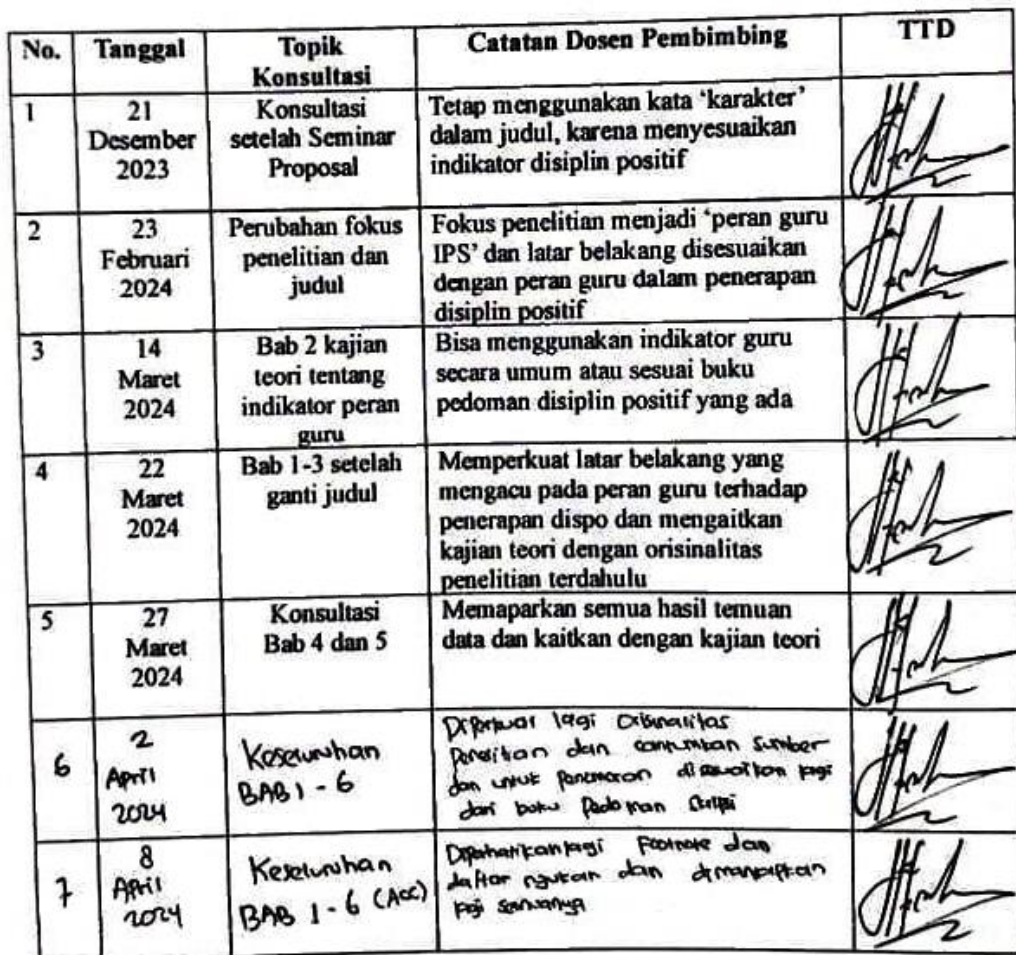 No. Tanggal Topik Konsultasi Catatan Dosen Pembimbing TTD
1
21
Desember
2023
Konsultasi
setelah Seminar
Proposal
Tetap menggunakan kata ‘karakter’
dalam judul, karena menyesuaikan
indikator disiplin positif
2
23
Februari
2024
Perubahan fokus
penelitian dan
judul
Fokus penelitian menjadi ‘peran guru
IPS’ dan latar belakang disesuaikan
dengan peran guru dalam penerapan
disiplin positif
3
14
Maret
2024
Bab 2 kajian
teori tentang
indikator peran
guru
Bisa menggunakan indikator guru
secara umum atau sesuai buku
pedoman disiplin positif yang ada
4
22
Maret
2024
Bab 1-3 setelah
ganti judul
Memperkuat latar belakang yang
mengacu pada peran guru terhadap
penerapan dispo dan mengaitkan
kajian teori dengan orisinalitas
penelitian terdahulu
5
27
Maret
2024
Konsultasi
Bab 4 dan 5
Memaparkan semua hasil temuan
data dan kaitkan dengan kajian teori
6
2
April
2024
Keseluruhan
BAB 1 - 6
lagi Orisinalitas
Penelitian dan cantumkan Sumber
dan untuk disesuaikan lagi
dari buku Pedoman Skripsi
7
8
April
2024
Keseluruhan
BAB 1 - 6 (Acc)
Diperhatikan lagi Footnote dan
daftar dan dimantapkan
lagi semuanya